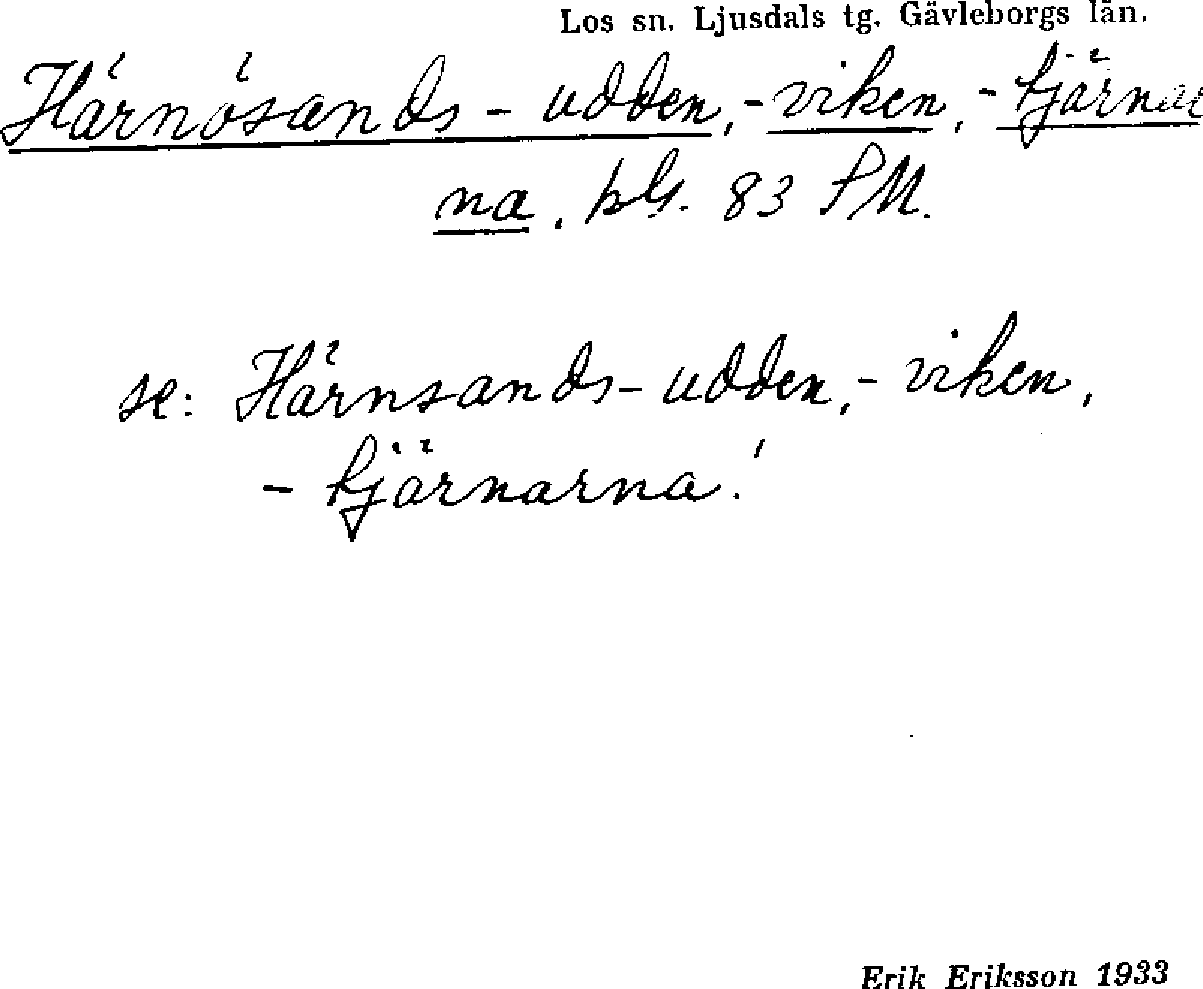 Los sn. Ljusdals tg. Gävleborgs län.
Härnösands-udden, -viken, -tjärnar
na, bl. 83 SM.
se: Härnsands-udden, -viken,
- tjärnarna!
Erik Eriksson 1933